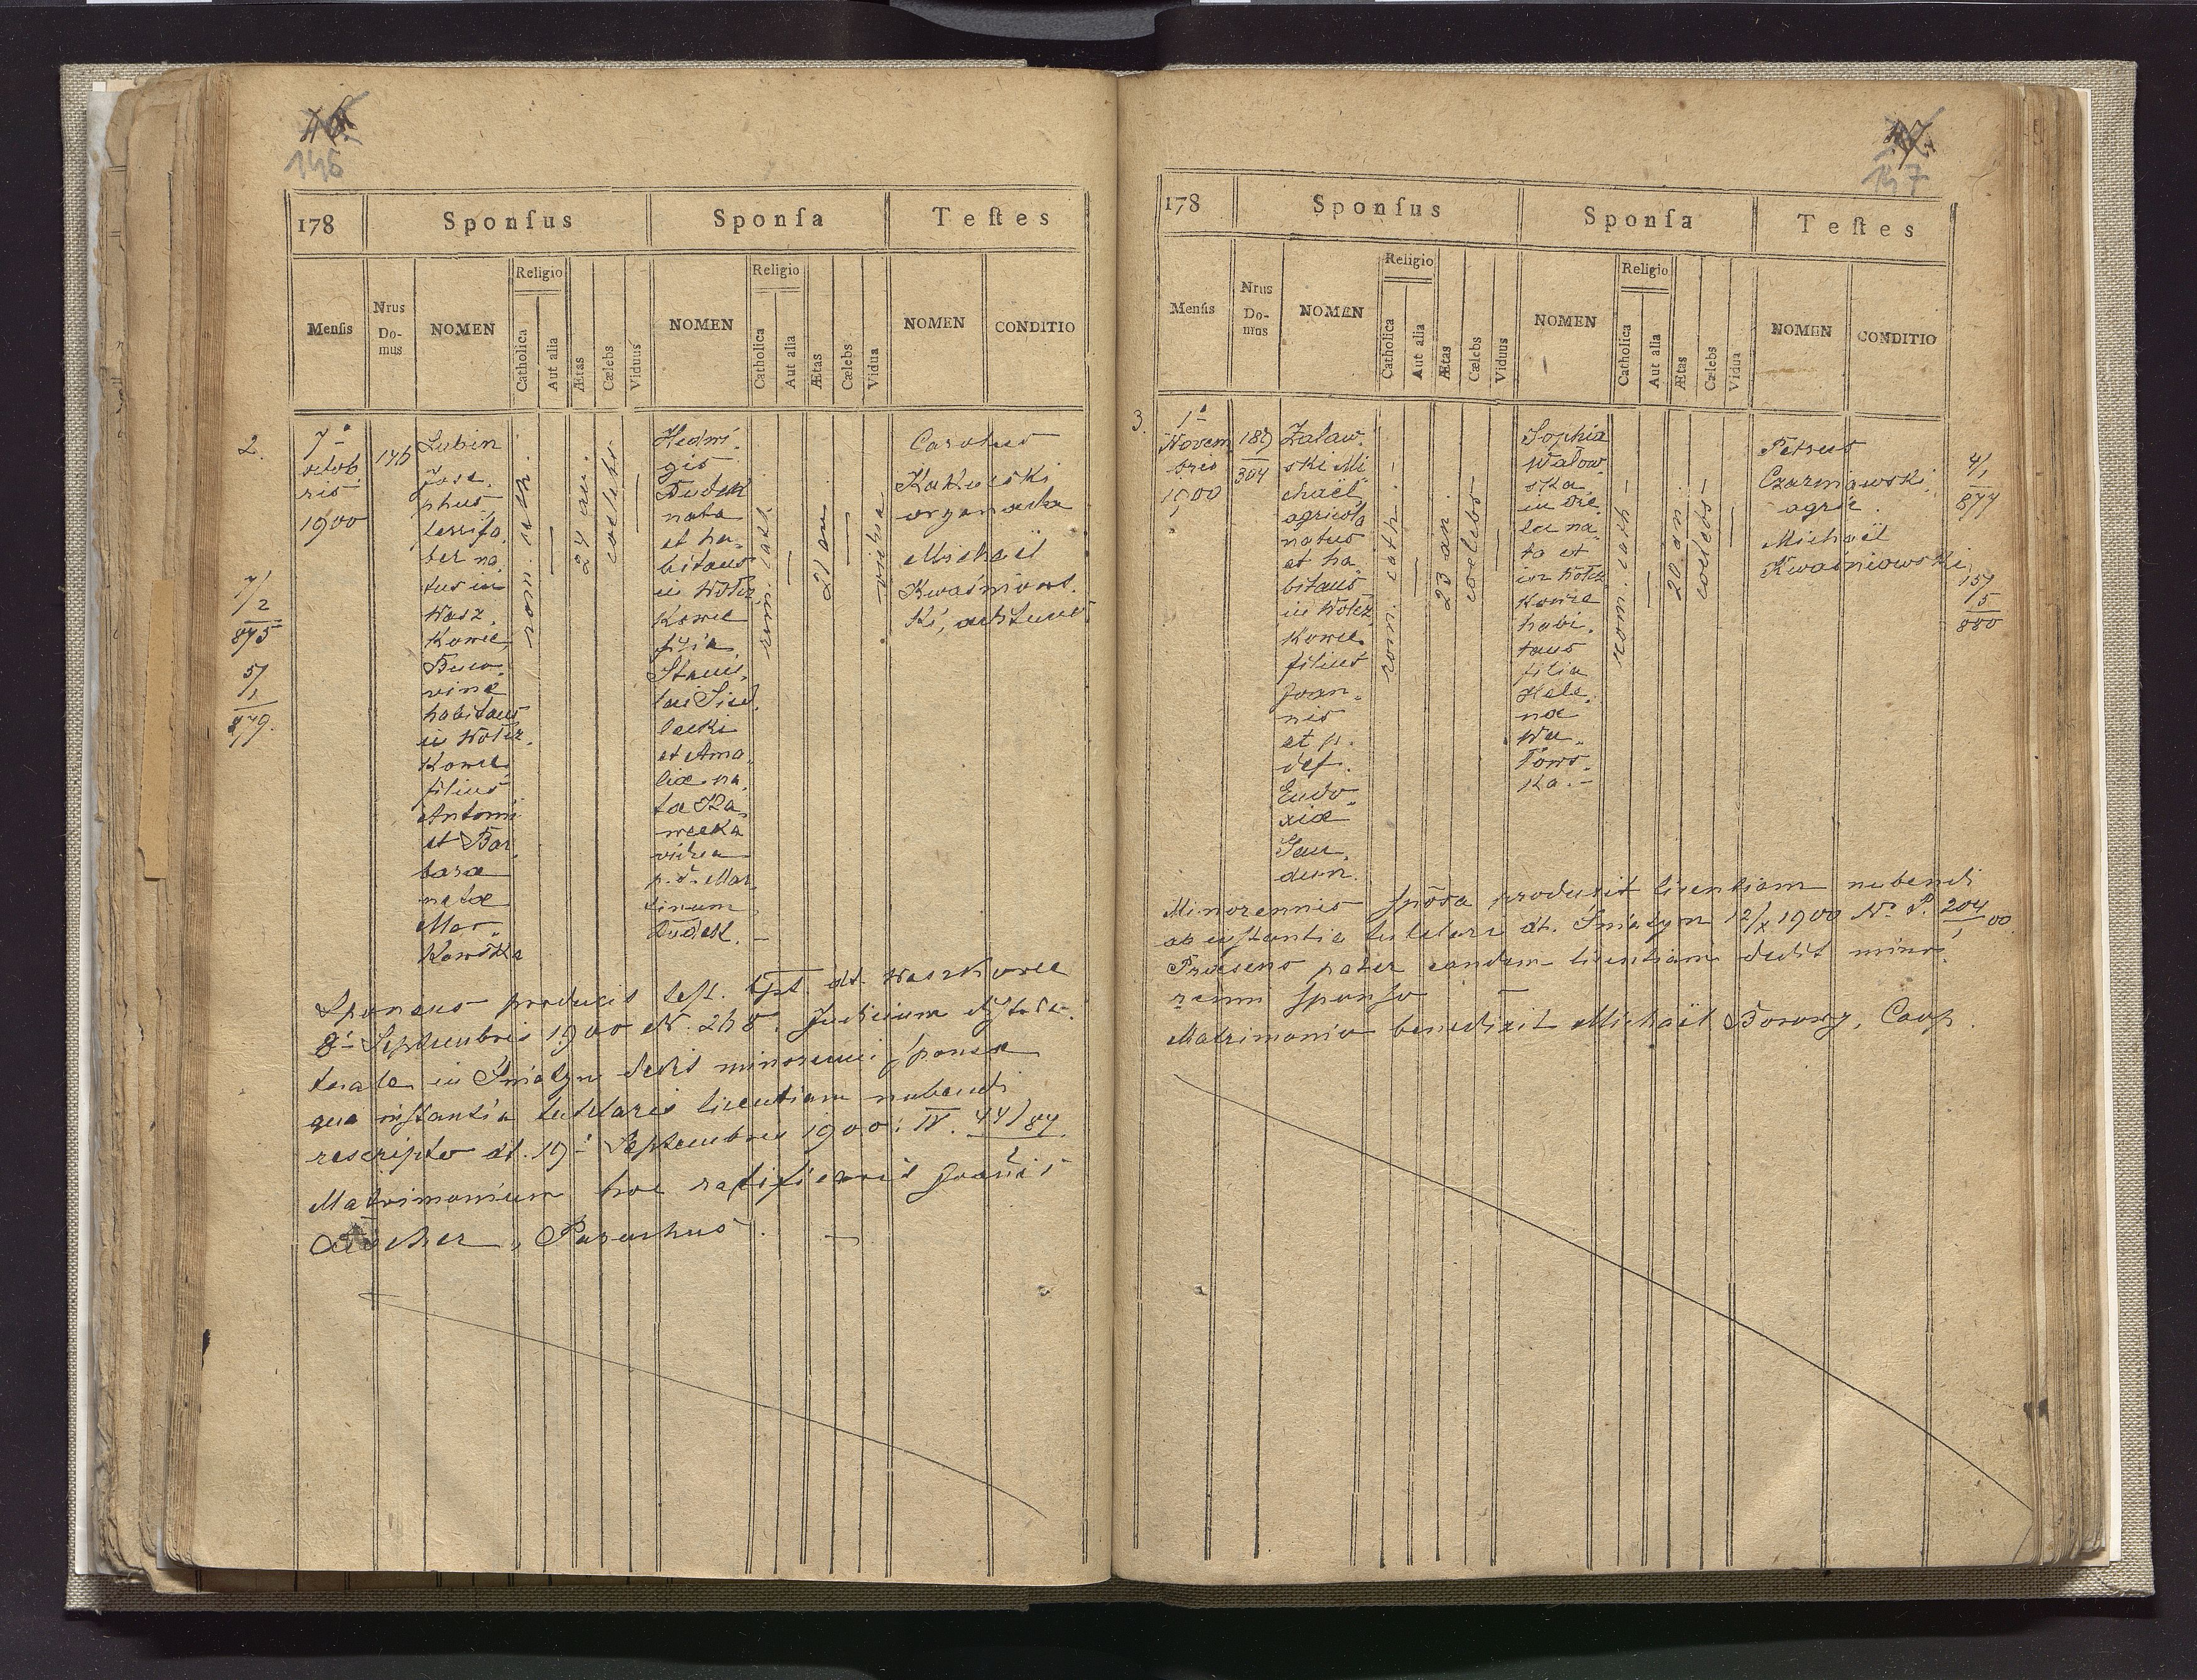 146
178 Sponſus Sponſa Teſtes
Menſis Nrus Do- mus NOMEN Religio Catholica Aut alia Ætas Cælebs Viduus NOMEN Religio Catholica Aut alia Ætas Cælebs Vidua NOMEN CONDITIO
2.
7ª
octob
ris
1900
146
Lubin
Jose,
phus,
ber na,
tus in
Wasz,
Kowce,
Buco,
vinæ
habitans
in Wołcz,
Kowce,
filius
Antonii
et Bar,
baræ
natæ
Mar,
Kowska
rom. cath.
24 an.
coelebs
Hedwi,
gis
Dudek
nata
et ha,
bitans
in Wołcz,
Kowce
filia
Stanis,
lai
et Ama,
liæ na,
ta
vidua
p. d. Mar,
tinum
Dudek. –
rom. cath.
21 an
vidua
Carolus
organista
Michaël
Kwaśniows,
Ki,
7/
2
875
5/
1
879.
Sponsus produxit test. dt. Waszkowce
8ª Septembris 1900 N. 265. Judicium
in Śniatyn dedit minorenni sponsæ
qua instantia tutelaris licentiam nubendi
rescripto dt. 19ª Septembris 1900: IV. 44/87
Matrimonium hoc ratificavit
Parochus. –
147
178 Sponſus Sponſa Teſtes
Menſis Nrus Do- mus NOMEN Religio Catholica Aut alia Ætas Cælebs Viduus NOMEN Religio Catholica Aut alia Ætas Cælebs Vidua NOMEN CONDITIO
3.
1ª
Novem
bris
1900
189
304
Zaław,
ski Mi
chaël,
agricola
natus
et ha,
bitans
in Wołcz,
Kowce.
filius
Joan,
nis
et p.
def.
Eudo,
xiæ
rom. cath.
23 an.
coelebs
Sophia
Wałow,
ska
in
na,
ta et
in Wołcz,
Kowce
habi,
tans
filia
Hele,
na
Wa,
łows,
ka. –
rom. cath –
20 an.
coelebs –
Petrus
Czarniawski,
agric.
Michaël
Kwaśniowski,
4/
1
877
15/
5
880
Minorennis spōsa produxit licentiam nubendi
ab instantia tutelari dt. Śniatyn 12/X 1900 N. P. 204/1 00
Præsens pater eandem licentiam dedit mino,
renni sponso –
Matrimonio benedixit Michaël Borowy, Coop.